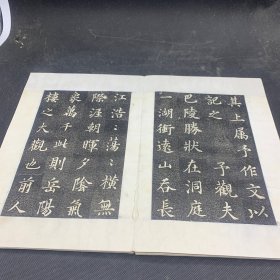 其上属予作文以
记之 予觀夫
巴陵勝状在洞庭
一湖銜遠山吞長
江浩〻蕩〻横無
際涯朝暉夕陰氣
象萬千此則岳陽
樓之大觀也前人